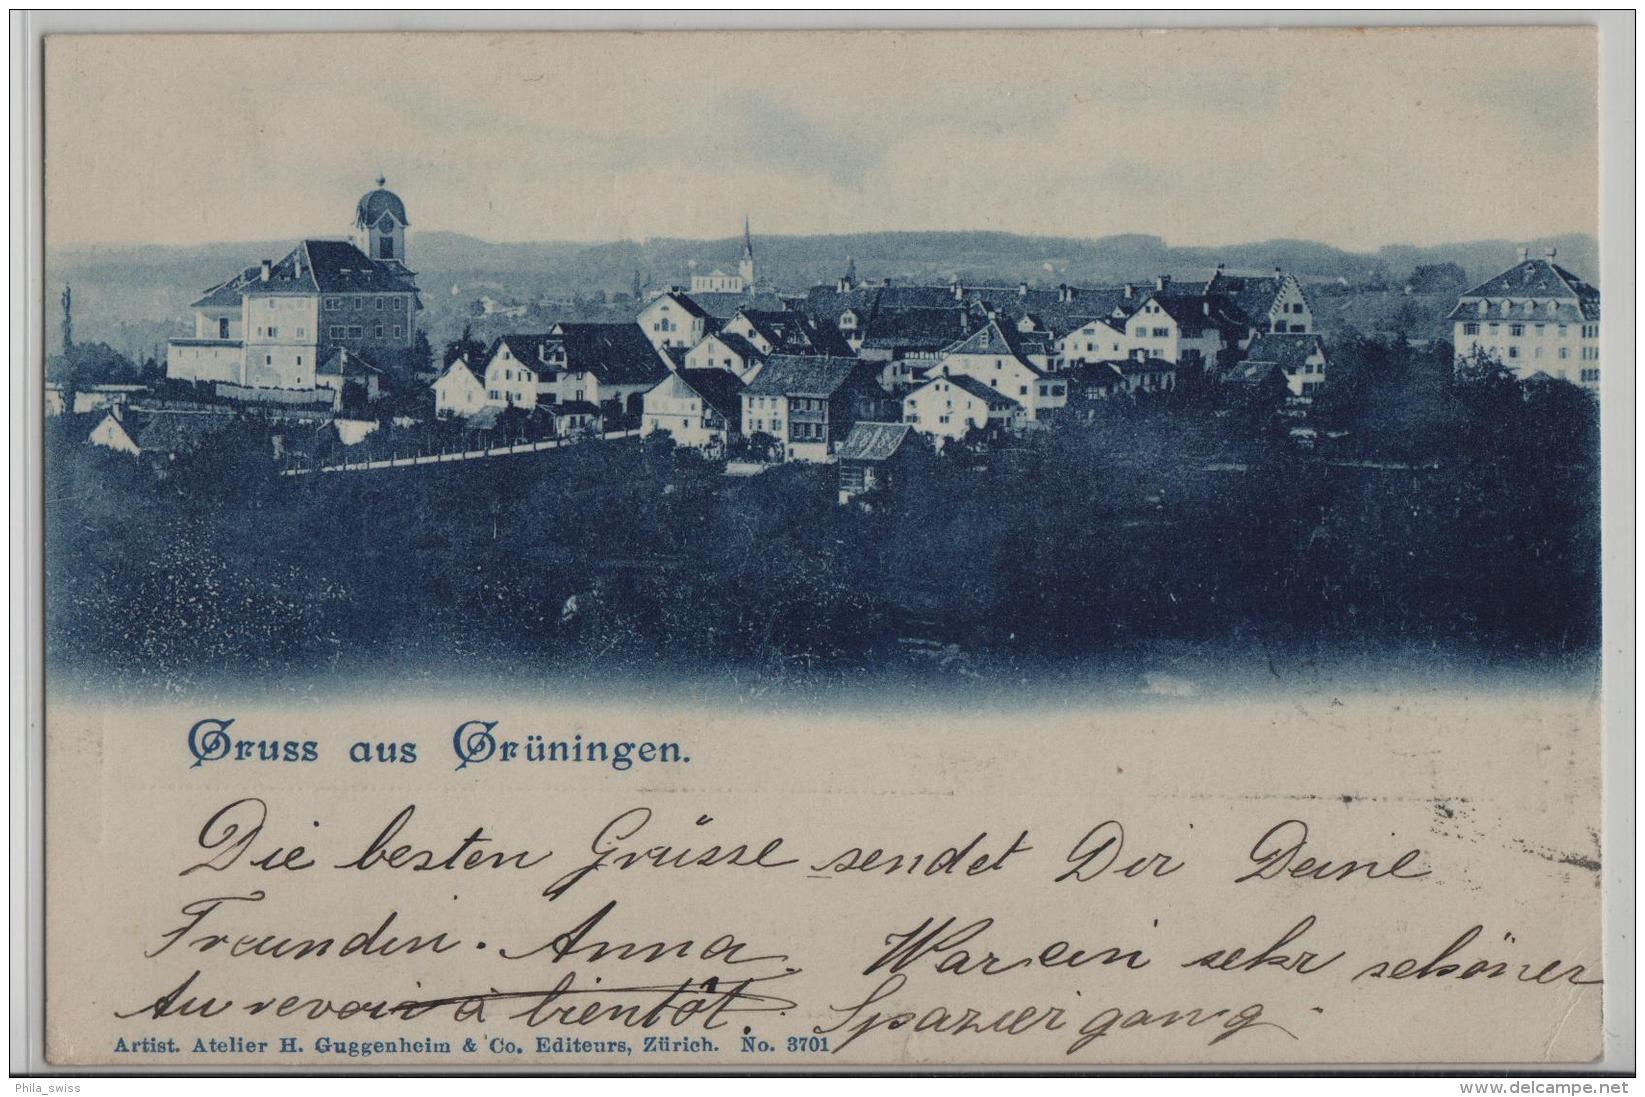 Gruss aus Grüningen.
Die besten Grüsse sendet Dir Deine
Freundin. Anna. War ein sehr schöner
Au revoir à bientôt. Spaziergang.
Artist. Atelier H. Guggenheim & Co. Editeurs, Zürich. No. 3701
Phila_swiss
www.delcampe.net